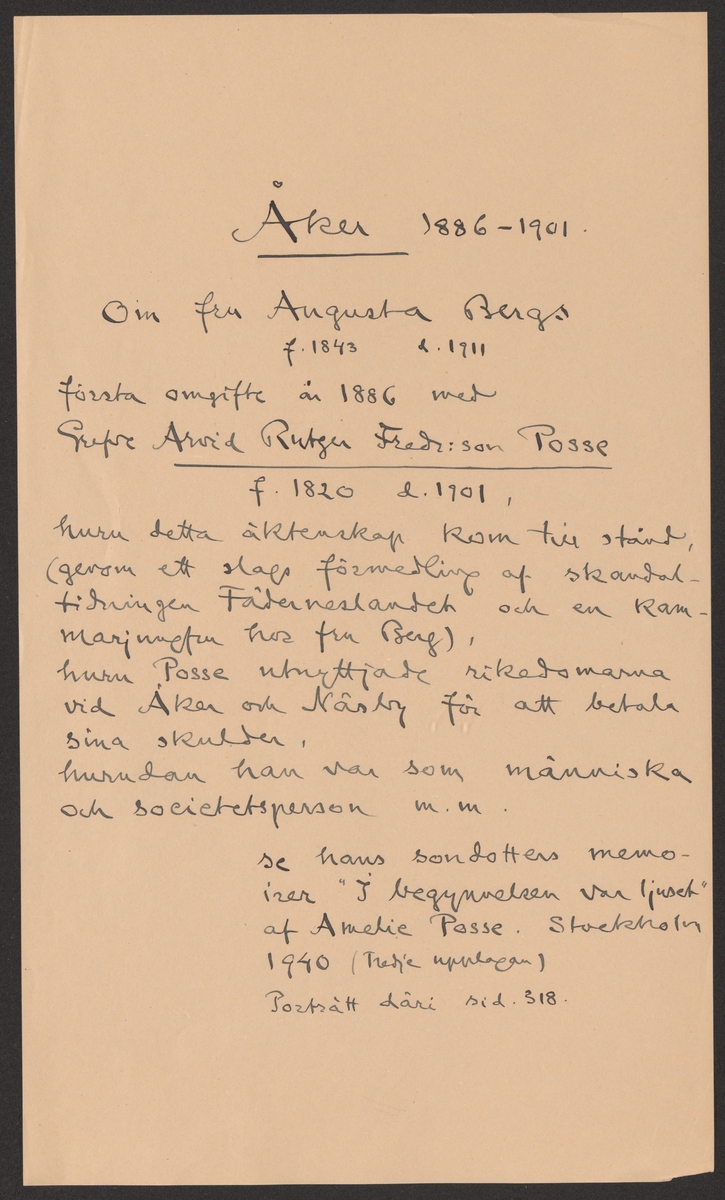 Åker 1886-1901.
Om fru Augusta Bergs
f. 1843 d. 1911
första omgifte år 1886 med
Grefve Arvid Rutger Fredr:son Posse
f. 1820 d. 1901,
huru detta äktenskap kom till stånd,
(genom ett slags förmedling af skandal-
tidningen Fäderneslandet och en kam-
marjungfru hos fru Berg),
huru Posse utnyttjade rikedomarna
vid Åker och Näsby för att betala
sina skulder,
hurudan han var som människa
och societetsperson m.m.
se hans sondotters memo-
irer "I begynnelsen var ljuset"
af Amelie Posse. Stockholm
1940 (Tredje upplagan)
Porträtt däri sid. 318.